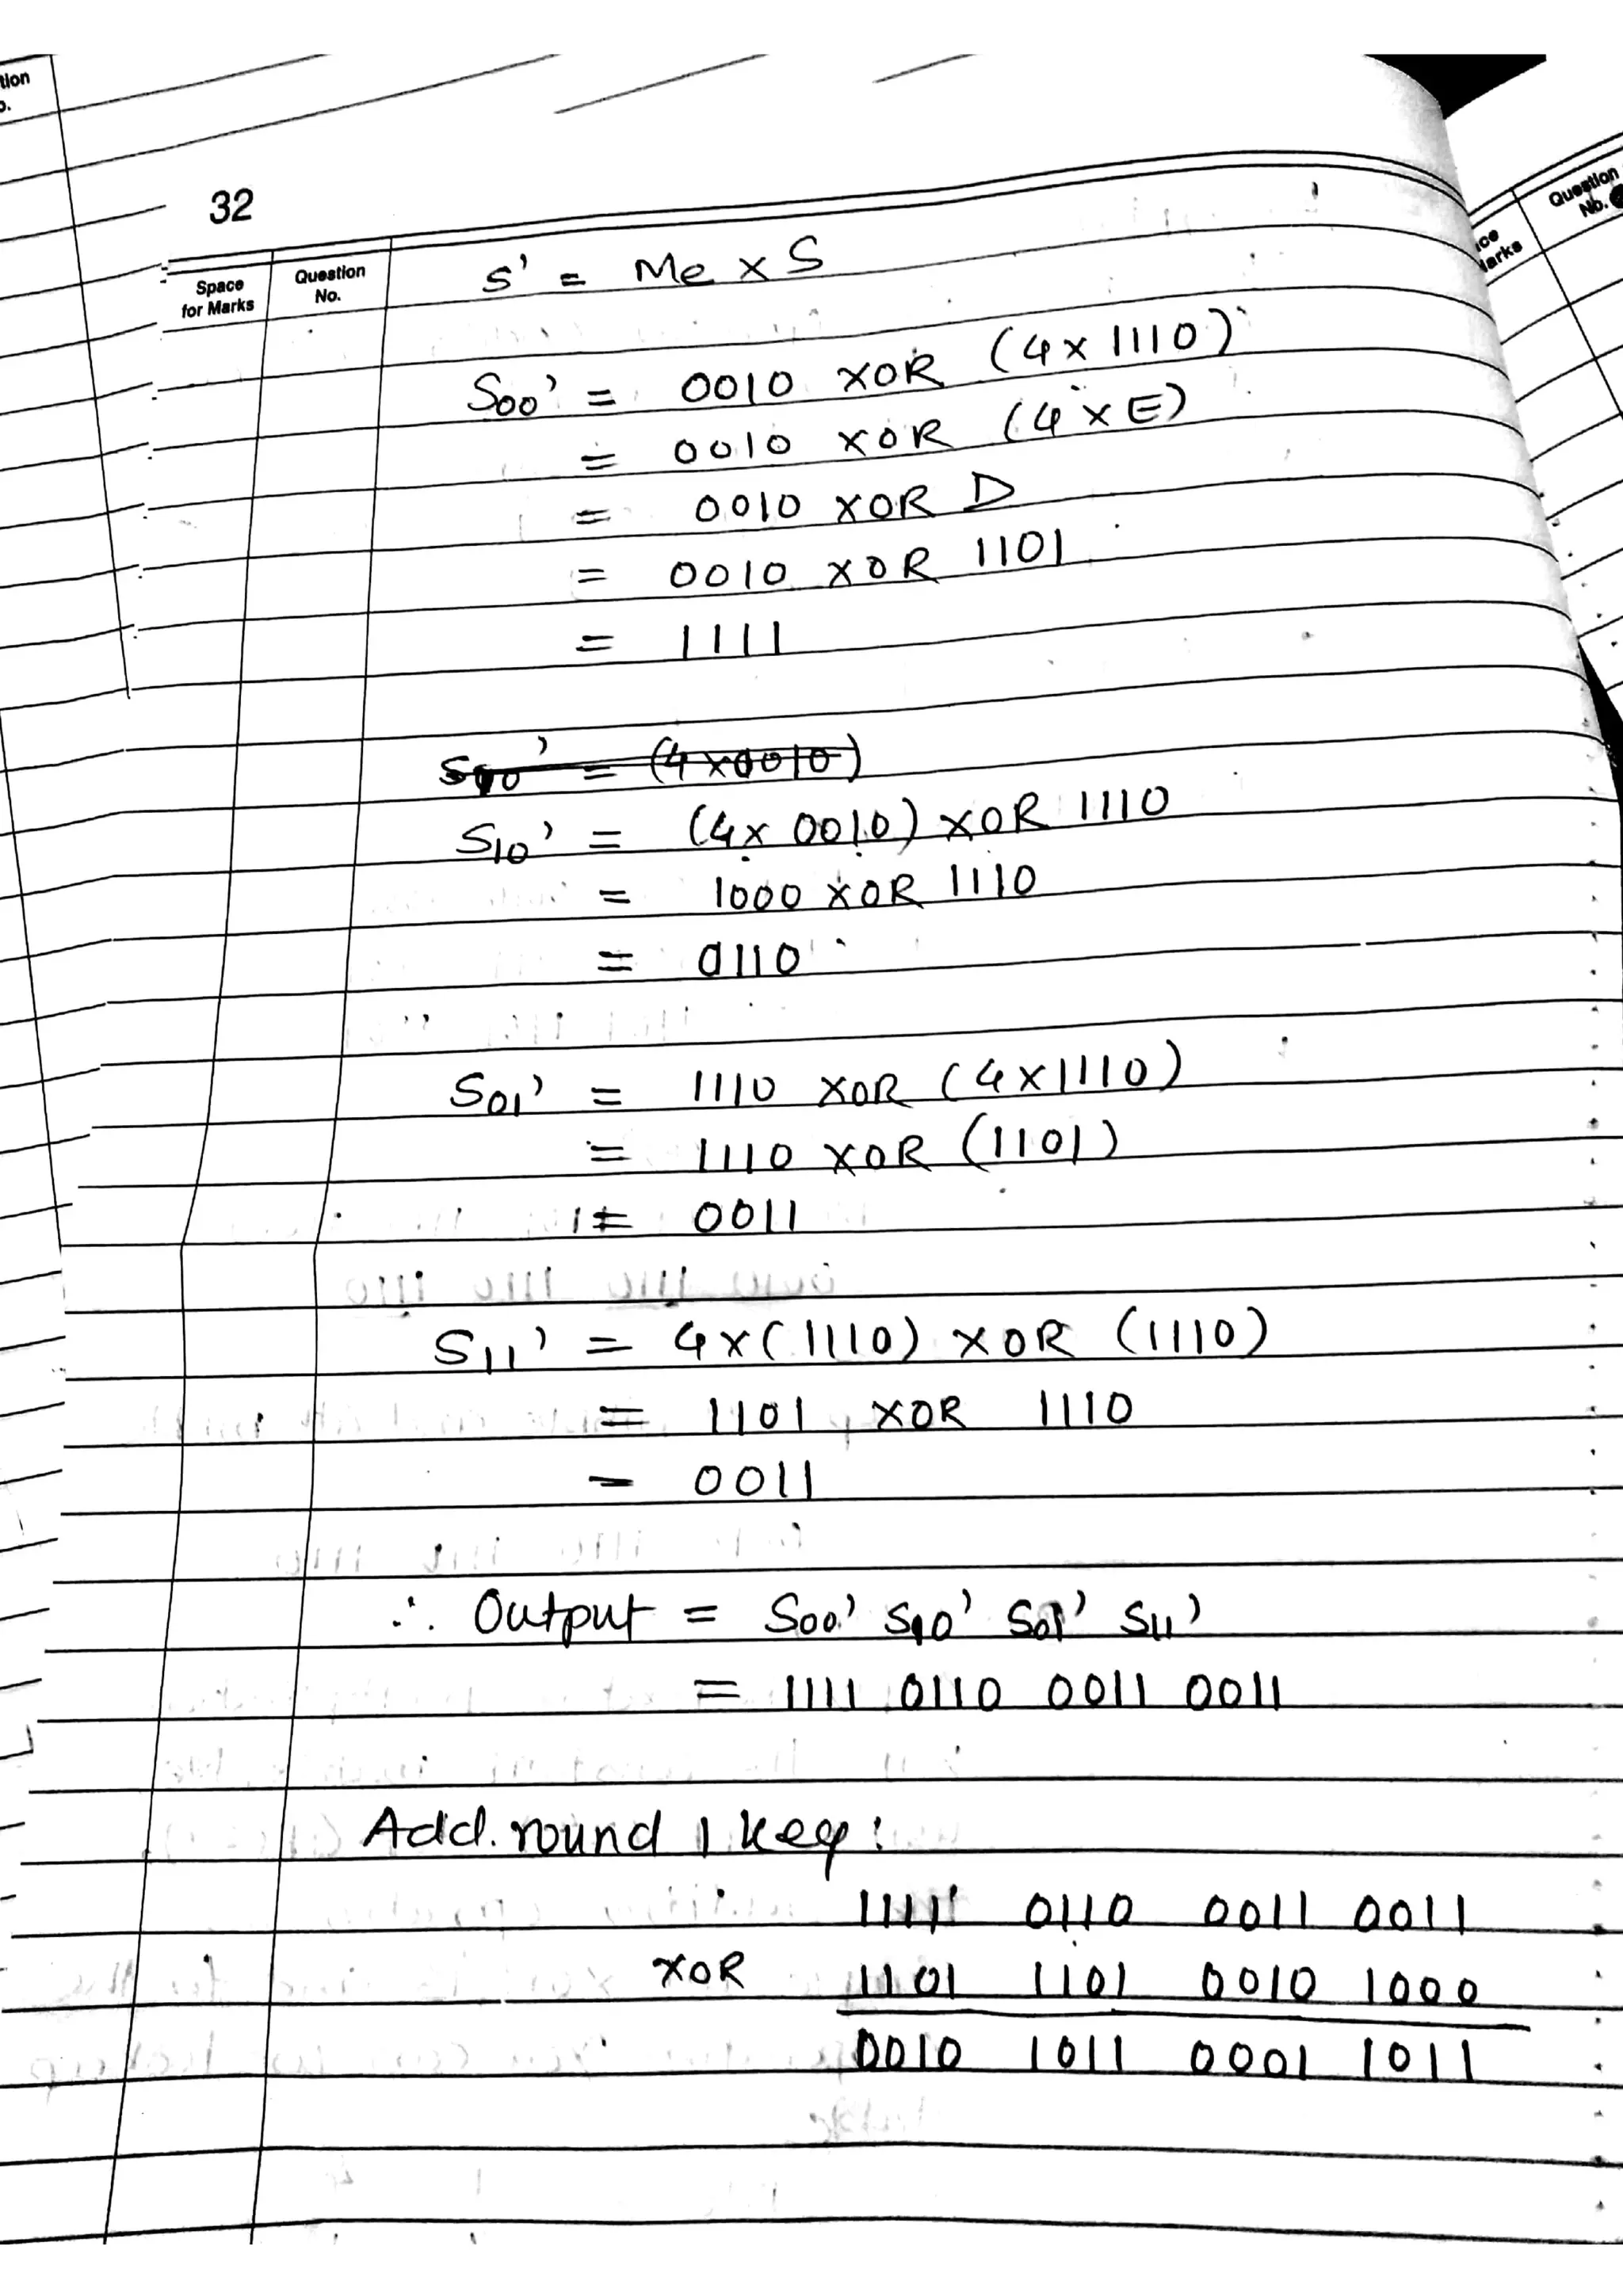 tion
32
Space
for Marks
Question
No.
Question
No.
ce
Marks
S' = Me x S
S00' = 0010 XOR (4 x 1110)
= 0010 XOR (4 x E)
= 0010 XOR D
= 0010 XOR 1101
= 1111
S10' = (4 x 0010)
S10' = (4 x 0010) XOR 1110
= 1000 XOR 1110
= 0110
S01' = 1110 XOR (4 x 1110)
= 1110 XOR (1101)
= 0011
S11' = 4 x (1110) XOR (1110)
= 1101 XOR 1110
= 0011
∴ Output = S00' S10' S01' S11'
= 1111 0110 0011 0011
Add. round 1 key:
1111 0110 0011 0011
XOR 1101 1101 0010 1000
0010 1011 0001 1011